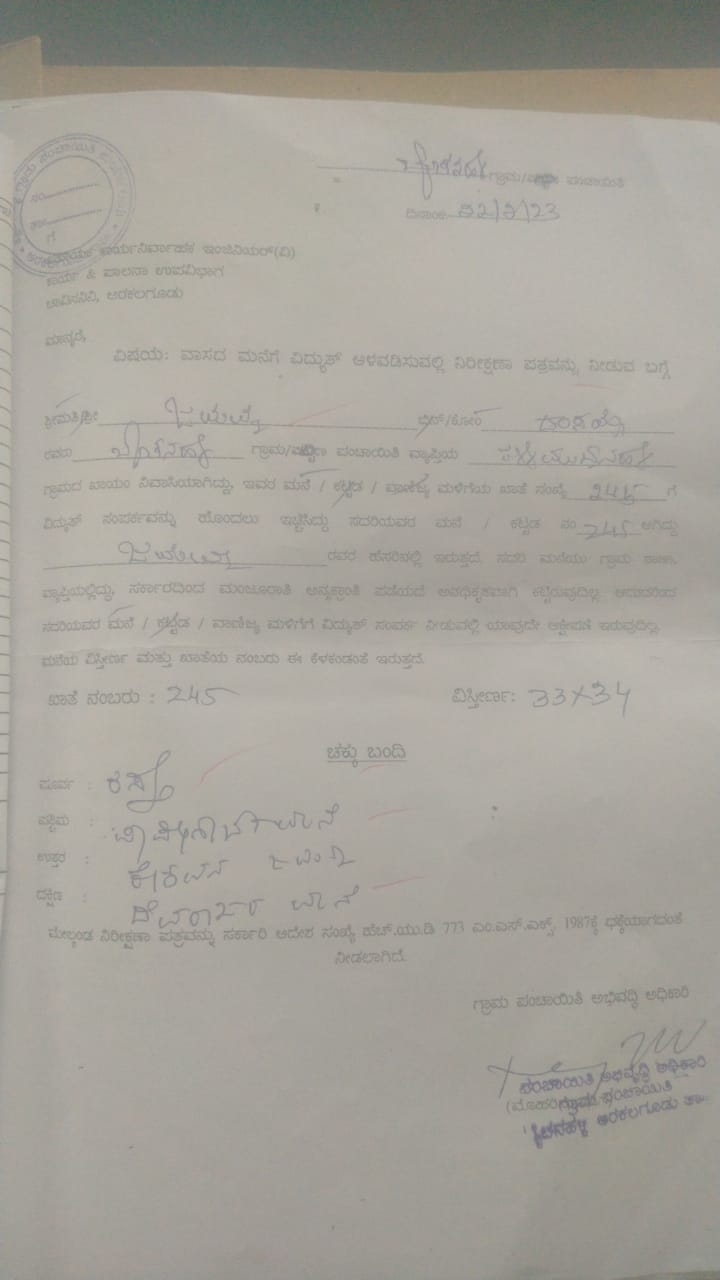 ಗ್ರಾಮ ಪಂಚಾಯಿತಿ
ನಂ
ತಾ
ಗೆ
ಗ್ರಾಮ/ ಪಂಚಾಯಿತಿ
ದಿನಾಂಕ: 22/5/23
ಕಾರ್ಯನಿರ್ವಾಹಕ ಇಂಜಿನಿಯರ್(ವಿ)
ಕಾರ್ಯ & ಪಾಲನಾ ಉಪವಿಭಾಗ
ಚಾವಿಸನಿನಿ, ಅರಕಲಗೂಡು
ಮಾನ್ಯರೆ,
ವಿಷಯ: ವಾಸದ ಮನೆಗೆ ವಿದ್ಯುತ್ ಅಳವಡಿಸುವಲ್ಲಿ ನಿರೀಕ್ಷಣಾ ಪತ್ರವನ್ನು ನೀಡುವ ಬಗ್ಗೆ
ಶ್ರೀಮತಿ/ಶ್ರೀ ಜಯಮ್ಮ ಬಿನ್/ಕೋಂ
ರವರು ಗ್ರಾಮ/ಪಟ್ಟಣ ಪಂಚಾಯಿತಿ ವ್ಯಾಪ್ತಿಯ
ಗ್ರಾಮದ ಖಾಯಂ ನಿವಾಸಿಯಾಗಿದ್ದು, ಇವರ ಮನೆ / ಕಟ್ಟಡ / ವಾಣಿಜ್ಯ ಮಳಿಗೆಯ ಖಾತೆ ಸಂಖ್ಯೆ 245 ಗೆ
ವಿದ್ಯುತ್ ಸಂಪರ್ಕವನ್ನು ಹೊಂದಲು ಇಚ್ಛಿಸಿದ್ದು ಸದರಿಯವರ ಮನೆ / ಕಟ್ಟಡ ನಂ 245 ಆಗಿದ್ದು
ಜಯಮ್ಮ ರವರ ಹೆಸರಿನಲ್ಲಿ ಇರುತ್ತದೆ. ಸದರಿ ಮನೆಯು ಗ್ರಾಮ ಠಾಣಾ,
ವ್ಯಾಪ್ತಿಯಲ್ಲಿದ್ದು, ಸರ್ಕಾರದಿಂದ ಮಂಜೂರಾತಿ ಅನ್ಯಕ್ರಾಂತಿ ಪಡೆಯದೆ ಅನಧಿಕೃತವಾಗಿ ಕಟ್ಟಿರುವುದಿಲ್ಲ. ಆದುದರಿಂದ
ಸದರಿಯವರ ಮನೆ / ಕಟ್ಟಡ / ವಾಣಿಜ್ಯ ಮಳಿಗೆಗೆ ವಿದ್ಯುತ್ ಸಂಪರ್ಕ ನೀಡುವಲ್ಲಿ ಯಾವುದೇ ಆಕ್ಷೇಪಣೆ ಇರುವುದಿಲ್ಲ.
ಮನೆಯ ವಿಸ್ತೀರ್ಣ ಮತ್ತು ಖಾತೆಯ ನಂಬರು ಈ ಕೆಳಕಂಡಂತೆ ಇರುತ್ತದೆ.
ಖಾತೆ ನಂಬರು : 245 ವಿಸ್ತೀರ್ಣ: 33×34
ಚಕ್ಕು ಬಂದಿ
ಪೂರ್ವ : ರಸ್ತೆ
ಪಶ್ಚಿಮ : ಮನೆ
ಉತ್ತರ :
ದಕ್ಷಿಣ : ದೇವರಾಜರ ಮನೆ
ಮೇಲ್ಕಂಡ ನಿರೀಕ್ಷಣಾ ಪತ್ರವನ್ನು ಸರ್ಕಾರಿ ಆದೇಶ ಸಂಖ್ಯೆ ಹೆಚ್.ಯು.ಡಿ 773 ಎಂ.ಎನ್.ಎಕ್ಸ್. 1987ಕ್ಕೆ ಧಕ್ಕೆಯಾಗದಂತೆ
ನೀಡಲಾಗಿದೆ.
ಗ್ರಾಮ ಪಂಚಾಯಿತಿ ಅಭಿವೃದ್ಧಿ ಅಧಿಕಾರಿ
ಪಂಚಾಯಿತಿ ಅಭಿವೃದ್ಧಿ ಅಧಿಕಾರಿ
(ಮೊಹರು) ಗ್ರಾಮ ಪಂಚಾಯಿತಿ
ಅರಕಲಗೂಡು ತಾ.